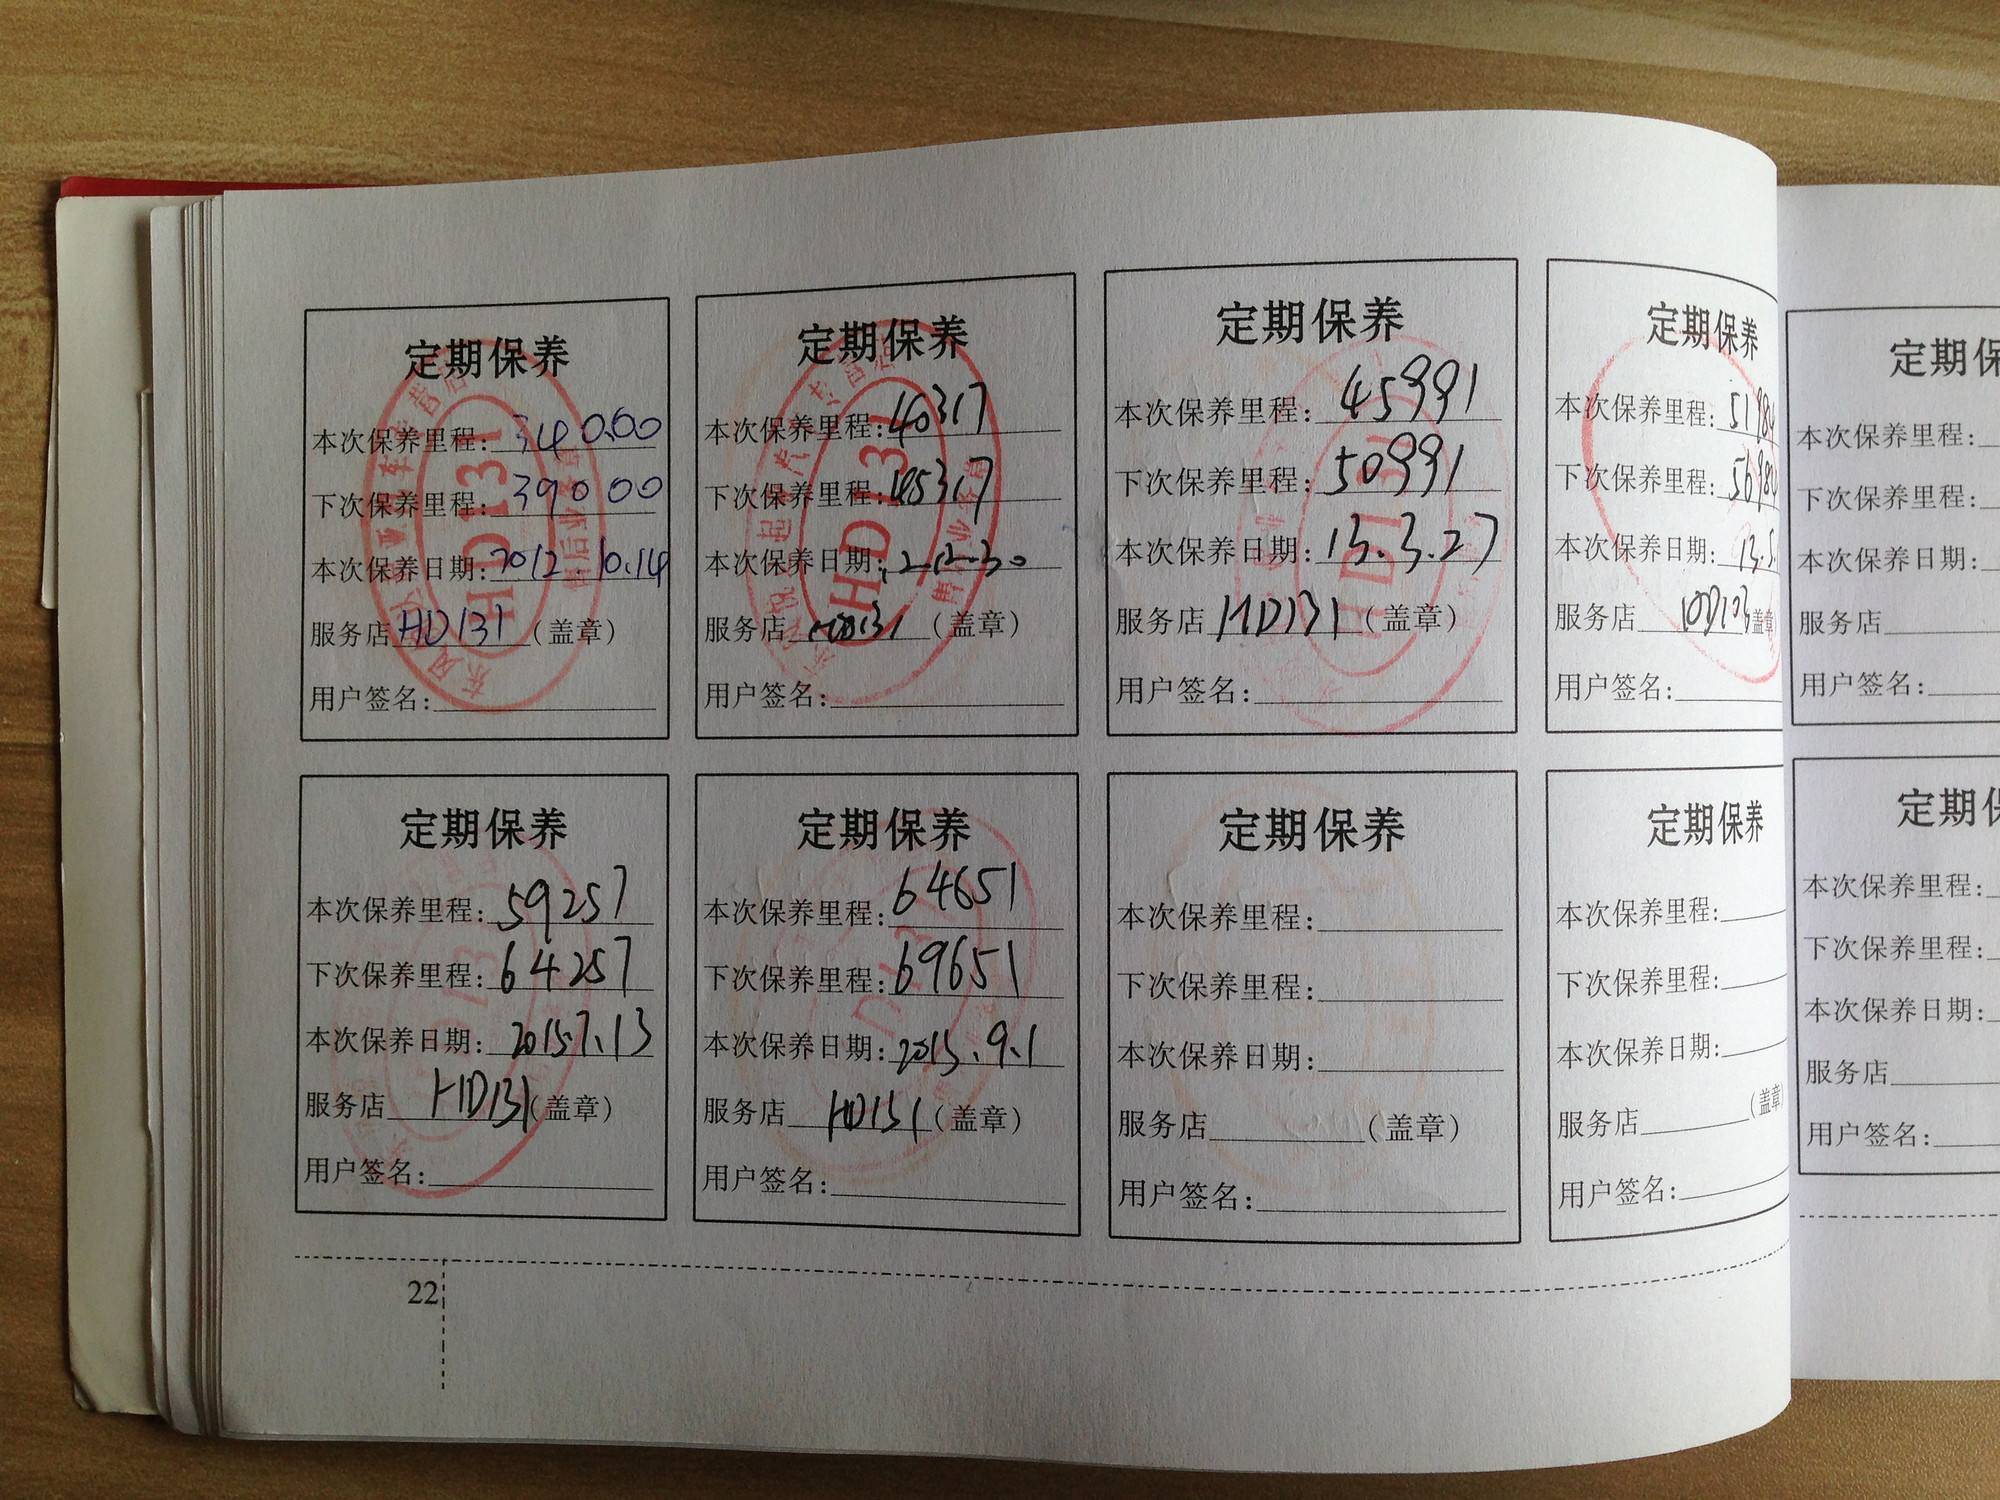 定期保养
本次保养里程: 34000
下次保养里程: 39000
本次保养日期: 2012.10.14
服务店 HD131 (盖章)
用户签名:
HD131
定期保养
本次保养里程: 40317
下次保养里程: 45317
本次保养日期: 12.12.30
服务店 HD131 (盖章)
用户签名:
HD131
定期保养
本次保养里程: 45991
下次保养里程: 50991
本次保养日期: 13.3.27
服务店 HD131 (盖章)
用户签名:
HD131
定期保养
本次保养里程: 51984
下次保养里程: 56984
本次保养日期: 13.5.
服务店 盖章
用户签名:
定期保养
本次保养里程: 59257
下次保养里程: 64257
本次保养日期: 2013.7.13
服务店 HD131 (盖章)
用户签名:
定期保养
本次保养里程: 64651
下次保养里程: 69651
本次保养日期: 2013.9.1
服务店 HD131 (盖章)
用户签名:
定期保养
本次保养里程:
下次保养里程:
本次保养日期:
服务店 (盖章)
用户签名:
定期保养
本次保养里程:
下次保养里程:
本次保养日期:
服务店 (盖章)
用户签名:
22
定期保
本次保养里程:
下次保养里程:
本次保养日期:
服务店
用户签名:
定期保
本次保养里程:
下次保养里程:
本次保养日期:
服务店
用户签名: